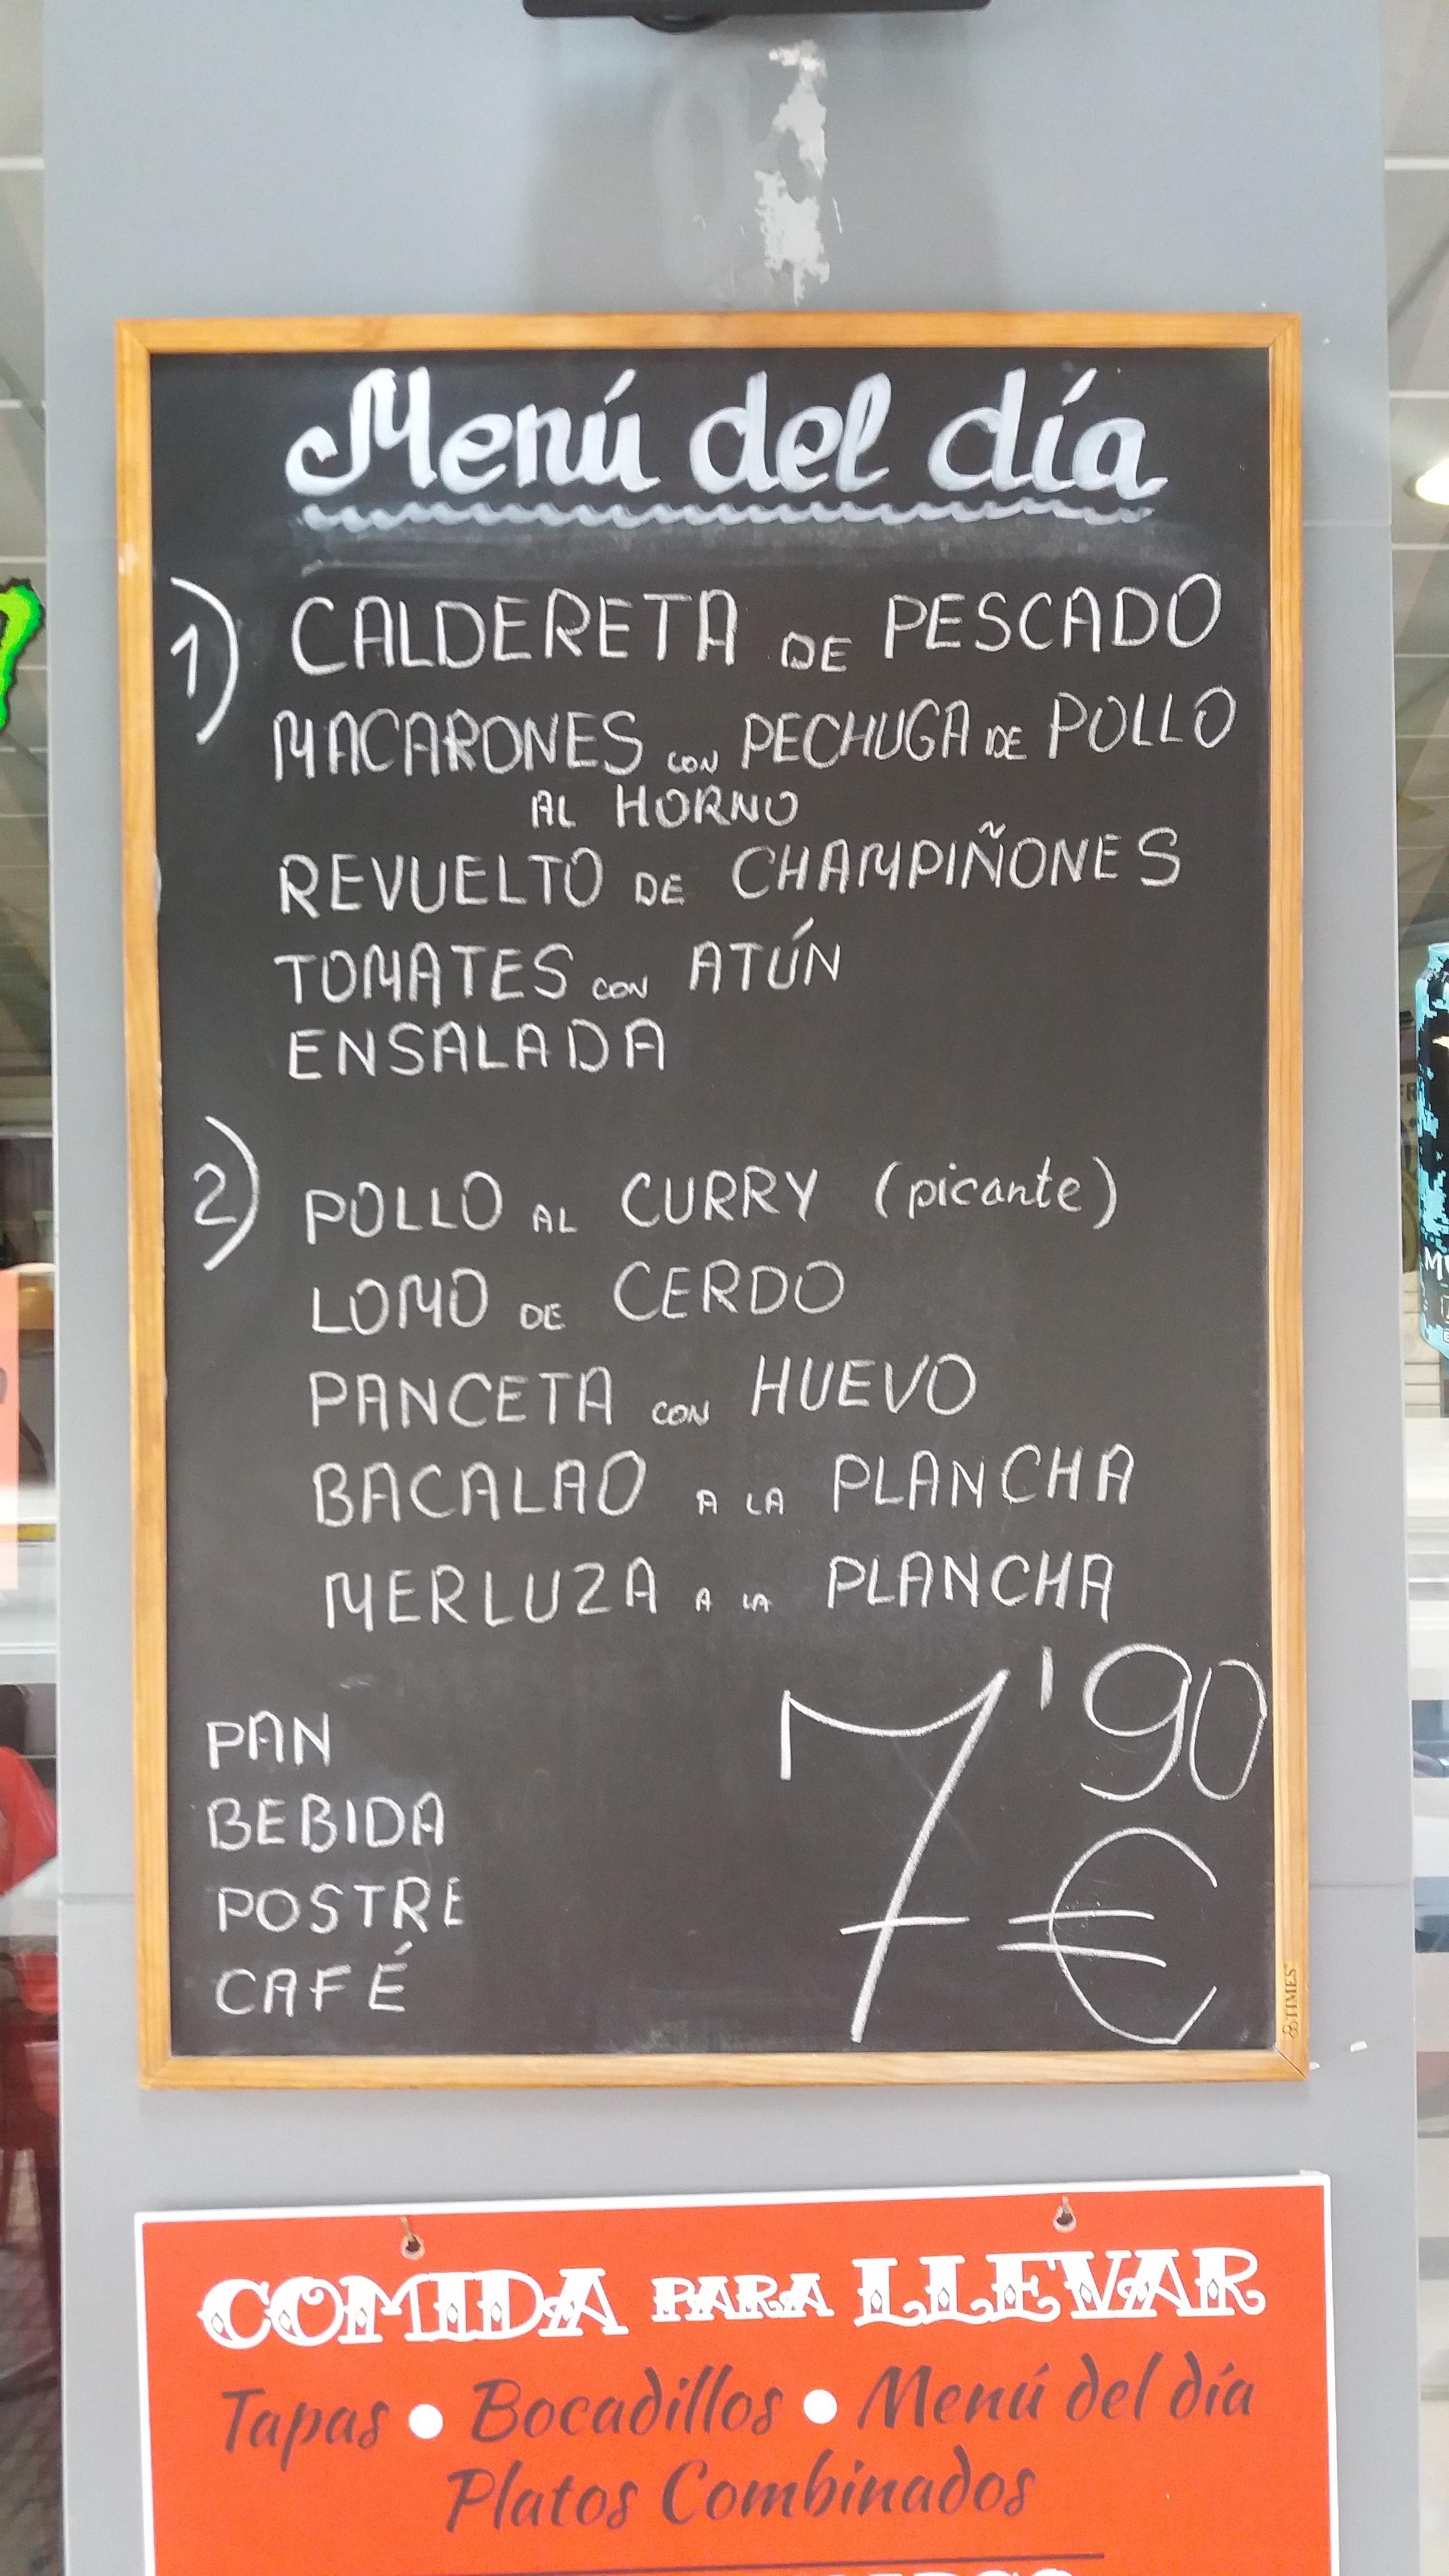 Menú del día
1) CALDERETA DE PESCADO
MACARONES CON PECHUGA DE POLLO
AL HORNO
REVUELTO DE CHAMPIÑONES
TOMATES CON ATÚN
ENSALADA
2) POLLO AL CURRY (picante)
LOMO DE CERDO
PANCETA CON HUEVO
BACALAO A LA PLANCHA
MERLUZA A LA PLANCHA
7'90
€
PAN
BEBIDA
POSTRE
CAFÉ
TIMES
COMIDA PARA LLEVAR
Tapas • Bocadillos • Menú del día
Platos Combinados